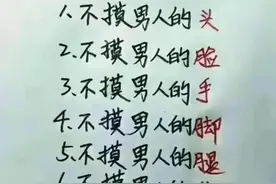 1.不摸男人的头
2.不摸男人的脸
3.不摸男人的手
4.不摸男人的脚
5.不摸男人的腿
不摸男人的